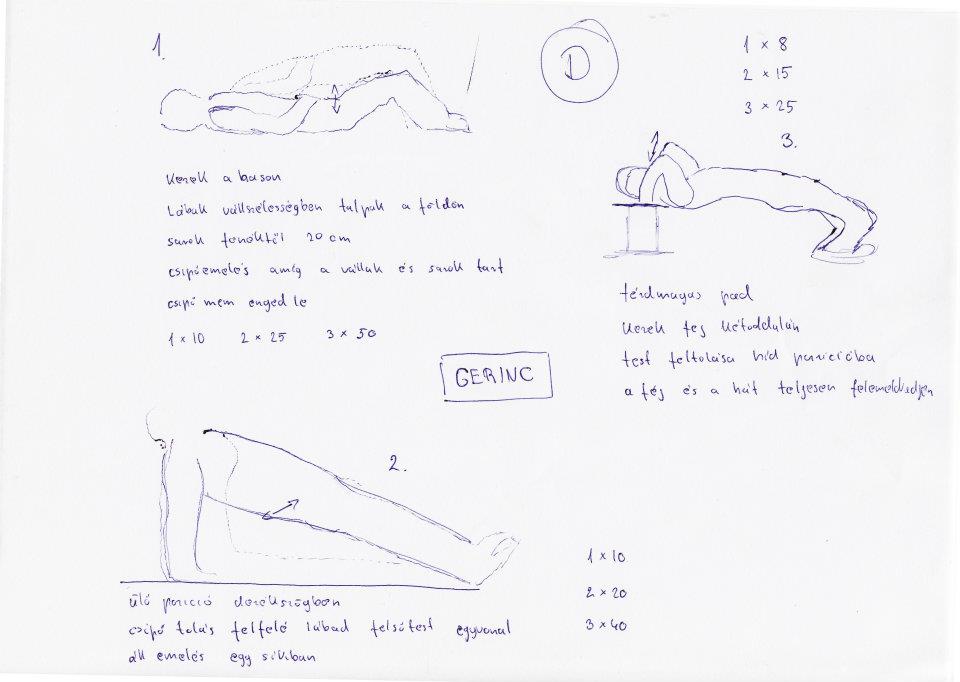 1.
D
1 x 8
2 x 15
3 x 25
3.
kezek a hason
Lábak vállszélességben talpak a földön
sarok fenéktől 20 cm
csípőemelés amíg a vállak és sarok tart
csípő nem enged le
1 x 10 2 x 25 3 x 50
térdmagas pad
kezek fej kétoldalán
test feltolása híd pozícióba
a fej és a hát teljesen felemelkedjen
GERINC
2.
1 x 10
2 x 20
3 x 40
ülő pozíció derékszögben
csípő tolás felfelé lábad felsőtest egyvonal
áll emelés egy síkban